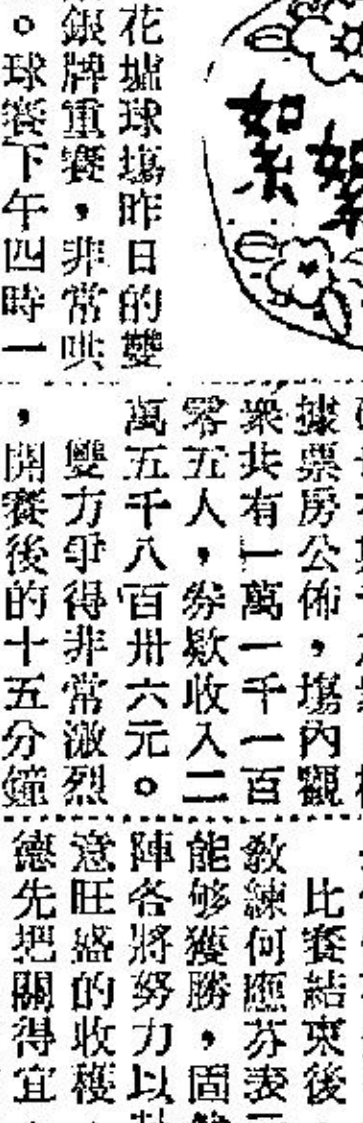 絮絮
花墟球塲昨日的雙
銀牌重賽，非常哄
。球賽下午四時一
據票房公佈，塲內觀
衆共有一萬一千一百
零五人，券欵收入二
萬五千八百卅六元。
雙方爭得非常激烈
，開賽後的十五分鐘
比賽結束後
敎練何應芬表
能够獲勝，固
陣各將努力以
意旺盛的收穫
德先把關得宜